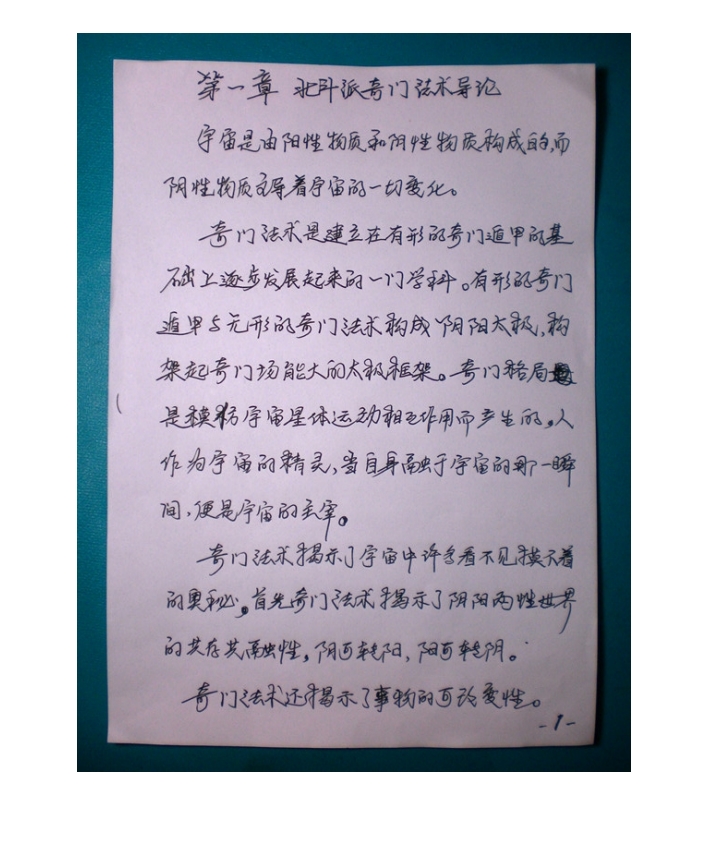 第一章 北斗派奇门法术导论
宇宙是由阳性物质和阴性物质构成的,而
阴性物质主导着宇宙的一切变化。
奇门法术是建立在有形的奇门遁甲的基
础上逐步发展起来的一门学科。有形的奇门
遁甲与无形的奇门法术构成阴阳太极,构
架起奇门场能大的太极框架。奇门格局
是模仿宇宙星体运动相互作用而产生的。人
作为宇宙的精灵,当自身融于宇宙的那一瞬
间,便是宇宙的主宰。
奇门法术揭示了宇宙中许多看不见摸不着
的奥秘。首先奇门法术揭示了阴阳两性世界
的共存共融性,阴可转阳,阳可转阴。
奇门法术还揭示了事物的可改变性。
-1-